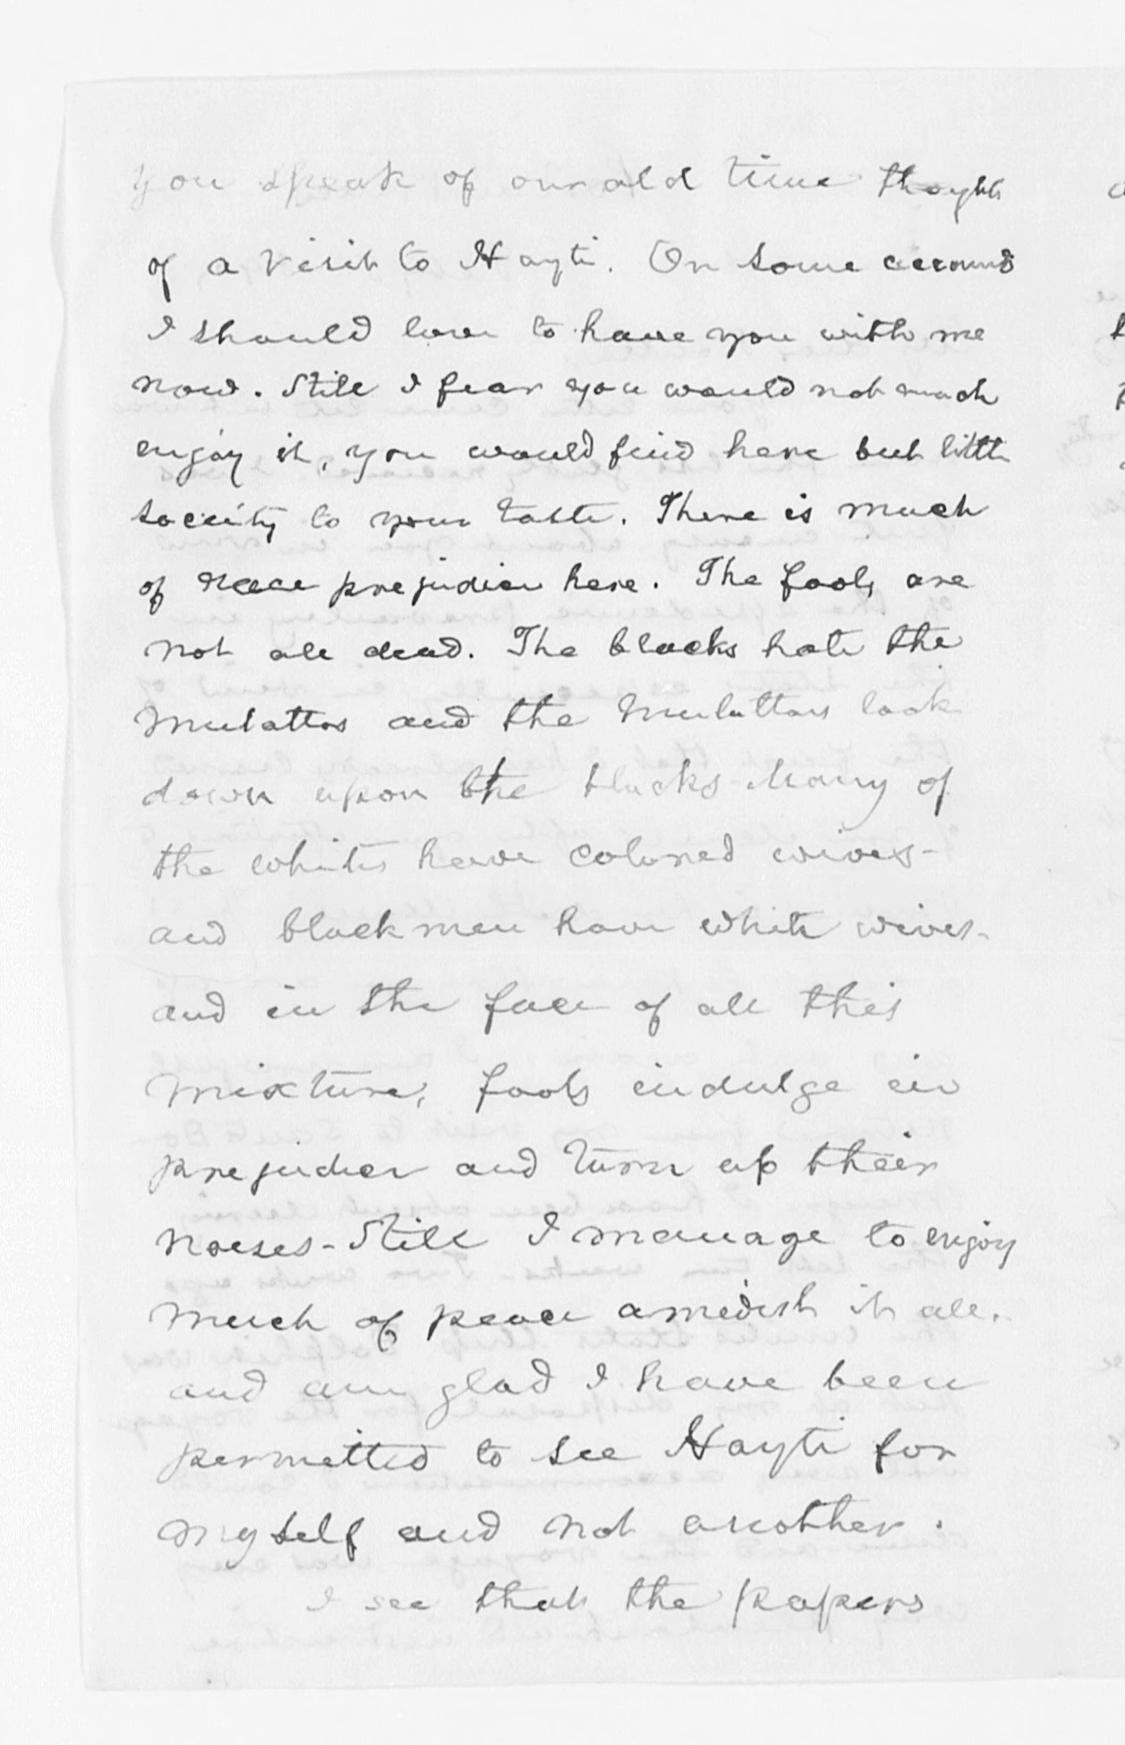 you speak of our old time thoughts
of a visit to Hayti. On some accounts
I should love to have you with me
now. Still I fear you would not much
enjoy it, you would find here but little
society to your taste. There is much
of race prejudice here. The fools are
not all dead. The blacks hate the
Mulattos and the Mulattoes look
down upon the blacks - Many of
the whites have colored wives -
and black men have white wives -
and in the face of all this
mixture, fools indulge in
prejudices and turn up their
noeses - Still I manage to enjoy
much of peace amedist it all.
and am glad I have been
permitted to see Hayti for
myself and not another.
I see that the papers